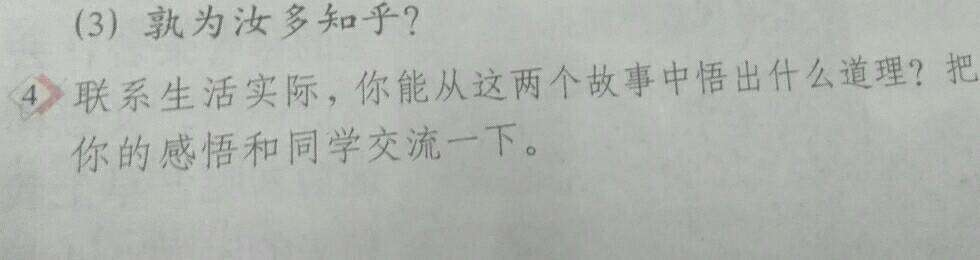 (3) 孰为汝多知乎?
4 联系生活实际，你能从这两个故事中悟出什么道理? 把
你的感悟和同学交流一下。